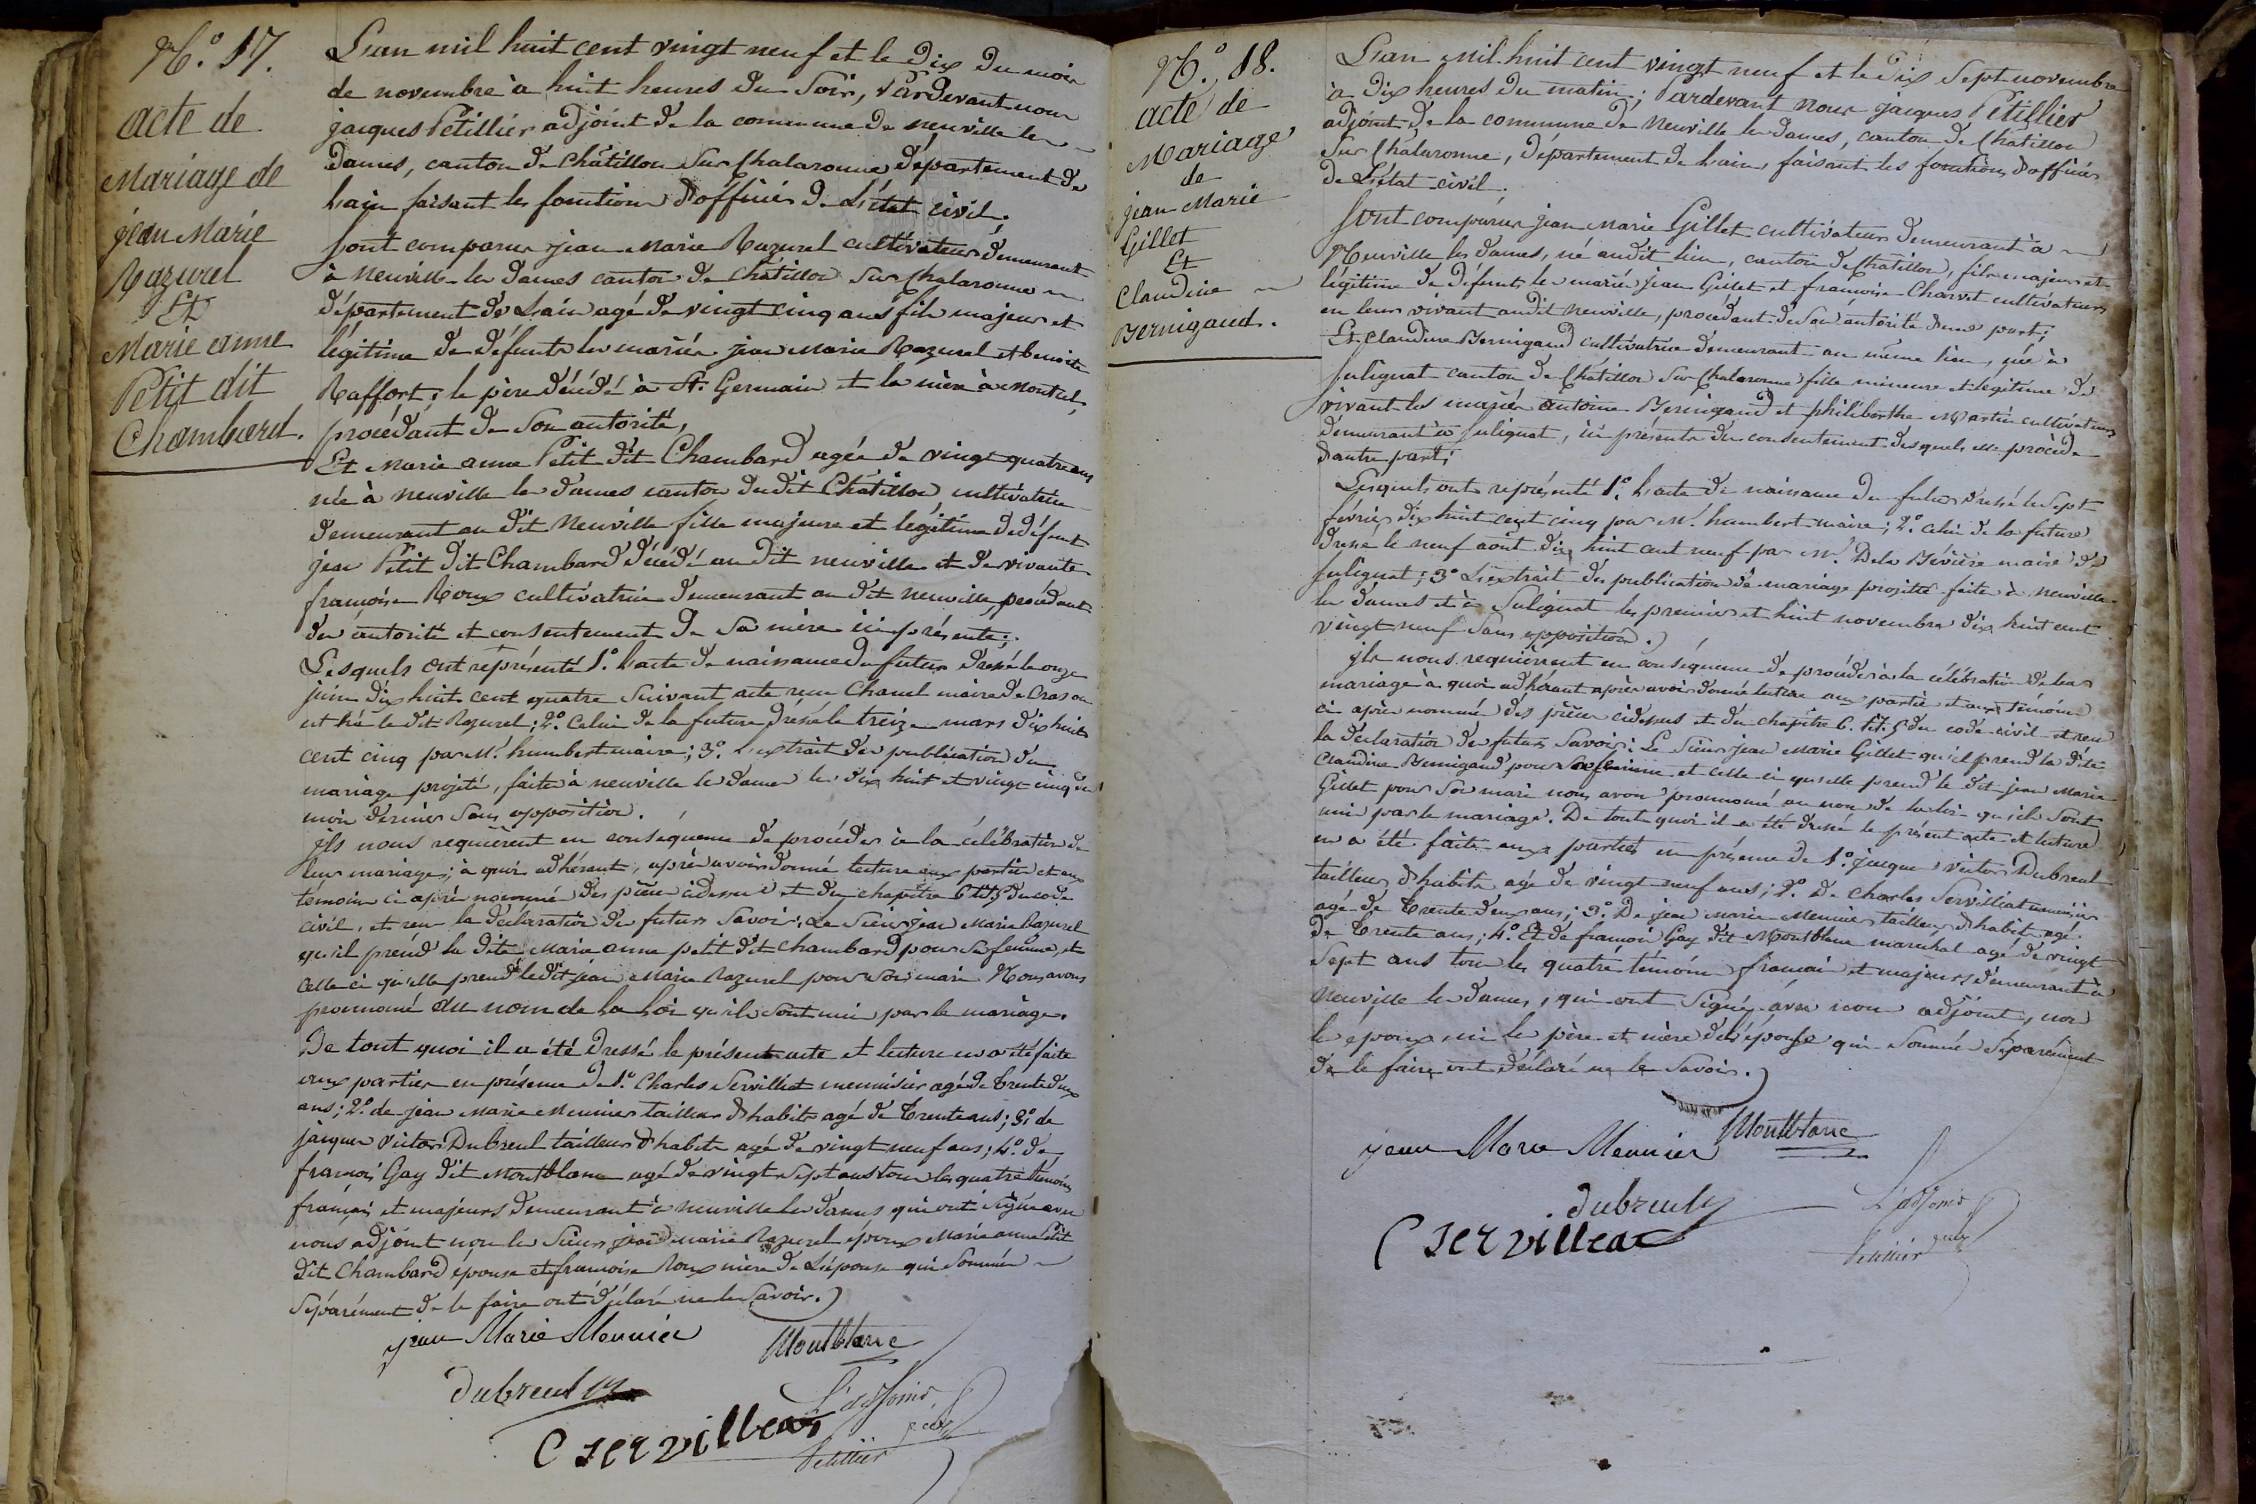 N.º 17.
acte de
Mariage de
jean Marie
Razurel
Et
Marie anne
Petit dit
Chambard.
L'an mil huit cent vingt neuf et le dix du mois
de novembre à huit heures du soir, Pardevant nous
jacques Pétillier adjoint de la commune de neuville les
Dames, canton de Châtillon sur Chalaronne département de
L'ain faisant les fonctions d'officier de L'état civil.
sont comparus jean Marie Razurel cultivateur demeurant
à Neuville les dames canton de Châtillon sur Chalaronne
département de L'ain agé de vingt cinq ans fils majeur et
légitime de défunts les mariés jean Marie Razurel et benoite
Raffort; le père décédé à St. Germain et la mère à Montcel,
procédant de son autorité,
Et Marie anne Petit dit Chambard agée de vingt quatre ans
née à neuville les dames canton dudit Châtillon cultivatrice
demeurant au dit Neuville fille majeure et legitime de défunt
jean Petit dit Chambard décédé au dit neuville et de vivante
françoise Roux cultivatrice demeurant au dit neuville, procédant
de autorité et consentement de sa mère ici présente;
Lesquels ont représenté 1.º L'acte de naissance du futur dressé le onze
juin dix huit cent quatre suivant acte reçu Chanel maire de Cras ou
est né le dit Razurel; 2.º Celui de la future dressé le treize mars dix huit
cent cinq par Mr. humbert maire; 3.º L'extrait des publications du
mariage projeté, faite à neuville les dames les dix huit et vingt cinq du
mois dernier sans opposition.
ils nous requièrent en conséquence de procéder à la célébration de
leur mariage; à quoi adhérant, après avoir donné lecture aux parties et aux
témoins ci après nommés des pièces cidessus et du chapitre 6 tit. 5 du code
civil, et reçu la déclaration des futurs savoir: Le Sieur jean Marie Razurel
qu'il prend la dite Marie anne petit dit Chambard pour sa femme, et
celle ci qu'elle prend le dit jean Marie Razurel pour son mari Nous avons
prononcé au nom de la Loi qu'ils sont unis par le mariage.
De tout quoi il a été dressé le présent acte et lecture en a été faite
aux parties en présence de 1.º Charles Servilliat menuisier agé de trente deux
ans; 2.º de jean Marie Meunier tailleur d'habits agé de trente ans; 3.º de
jacques victor Dubreul tailleur d'habits agé de vingt neuf ans; 4.º de
françois Gay dit Montblanc agé de vingt sept ans tous les quatre témoins
français et majeurs demeurant à neuville les dames qui ont signé avec
nous adjoint non le sieur jean Marie Razurel époux Marie anne Petit
dit Chambard épouse et françoise Roux mère de L'épouse qui sommés
séparément de le faire ont déclaré ne le savoir.
jean Marie Meunier
Montblanc
dubreul
L'adjoint
C servilleat
Petillier
N.º 18.
acte de
Mariage
de
jean Marie
Gillet
Et
Claudine
Bernigaud.
L'an mil huit cent vingt neuf et le dix sept novembre
à dix heures du matin; Pardevant nous jacques Pétillier
adjoint de la commune de Neuville les dames, canton de Châtillon
sur Chalaronne, département de L'ain, faisant les fonctions d'officier
de L'état civil.
sont comparus jean Marie Gillet cultivateur demeurant à
Neuville les dames, né audit lieu, canton de Châtillon, fils majeur et
légitime de défunts les mariés jean Gillet et françoise Charvet cultivateurs
en leurs vivant audit Neuville, procédant de son autorité d'une part;
Et Claudine Bernigaud cultivatrice demeurant au même lieu, née à
Sulignat canton de Châtillon sur Chalaronne fille mineure et légitime de
vivant les mariés antoine Bernigaud et philiberthe Martin cultivateurs
demeurant à sulignat, ici présents du consentement desquels elle procède
d'autre part;
Lesquels ont représenté 1.º L'acte de naissance du futur dressé le sept
février dix huit cent cinq par Mr. humbert maire; 2.º celui de la future
dressé le neuf août dix huit cent neuf par Mr. Dela Bévière maire de
sulignat; 3.º L'extrait des publications de mariage projetté faite à neuville
les dames et à Sulignat les premier et huit novembre dix huit cent
vingt neuf sans opposition.
ils nous requièrent en conséquence de procéder à la célébration de leur
mariage à quoi adhérant après avoir donné lecture aux parties et aux témoins
ci après nommés des pièces cidessus et du chapitre 6. tit. 5 du code civil et reçu
la déclaration des futurs savoir: Le Sieur jean Marie Gillet qu'il prend la dite
Claudine Bernigaud pour sa femme et celle ci qu'elle prend le dit jean Marie
Gillet pour son mari nous avons prononcé au nom de la loi qu'ils sont
unis par le mariage. De tout quoi il a été dressé le présent acte et lecture
en a été faite aux parties en présence de 1.º jacques victor Dubreul
tailleur d'habits agé de vingt neuf ans; 2.º de Charles Servilliat menuisier
agé de trente deux ans; 3.º De jean Marie Meunier tailleur d'habits agé
de trente ans; 4.º Et de françois Gay dit Montblanc marechal agé de vingt
sept ans tous les quatre témoins français et majeurs demeurant à
Neuville les dames, qui ont signés avec nous adjoint, non
le epoux ni le père et mère de L'épouse qui sommés séparément
de le faire ont déclaré ne le savoir.
Montblanc
jean Marie Meunier
dubreul
L'adjoint
C servilleat
Petillier